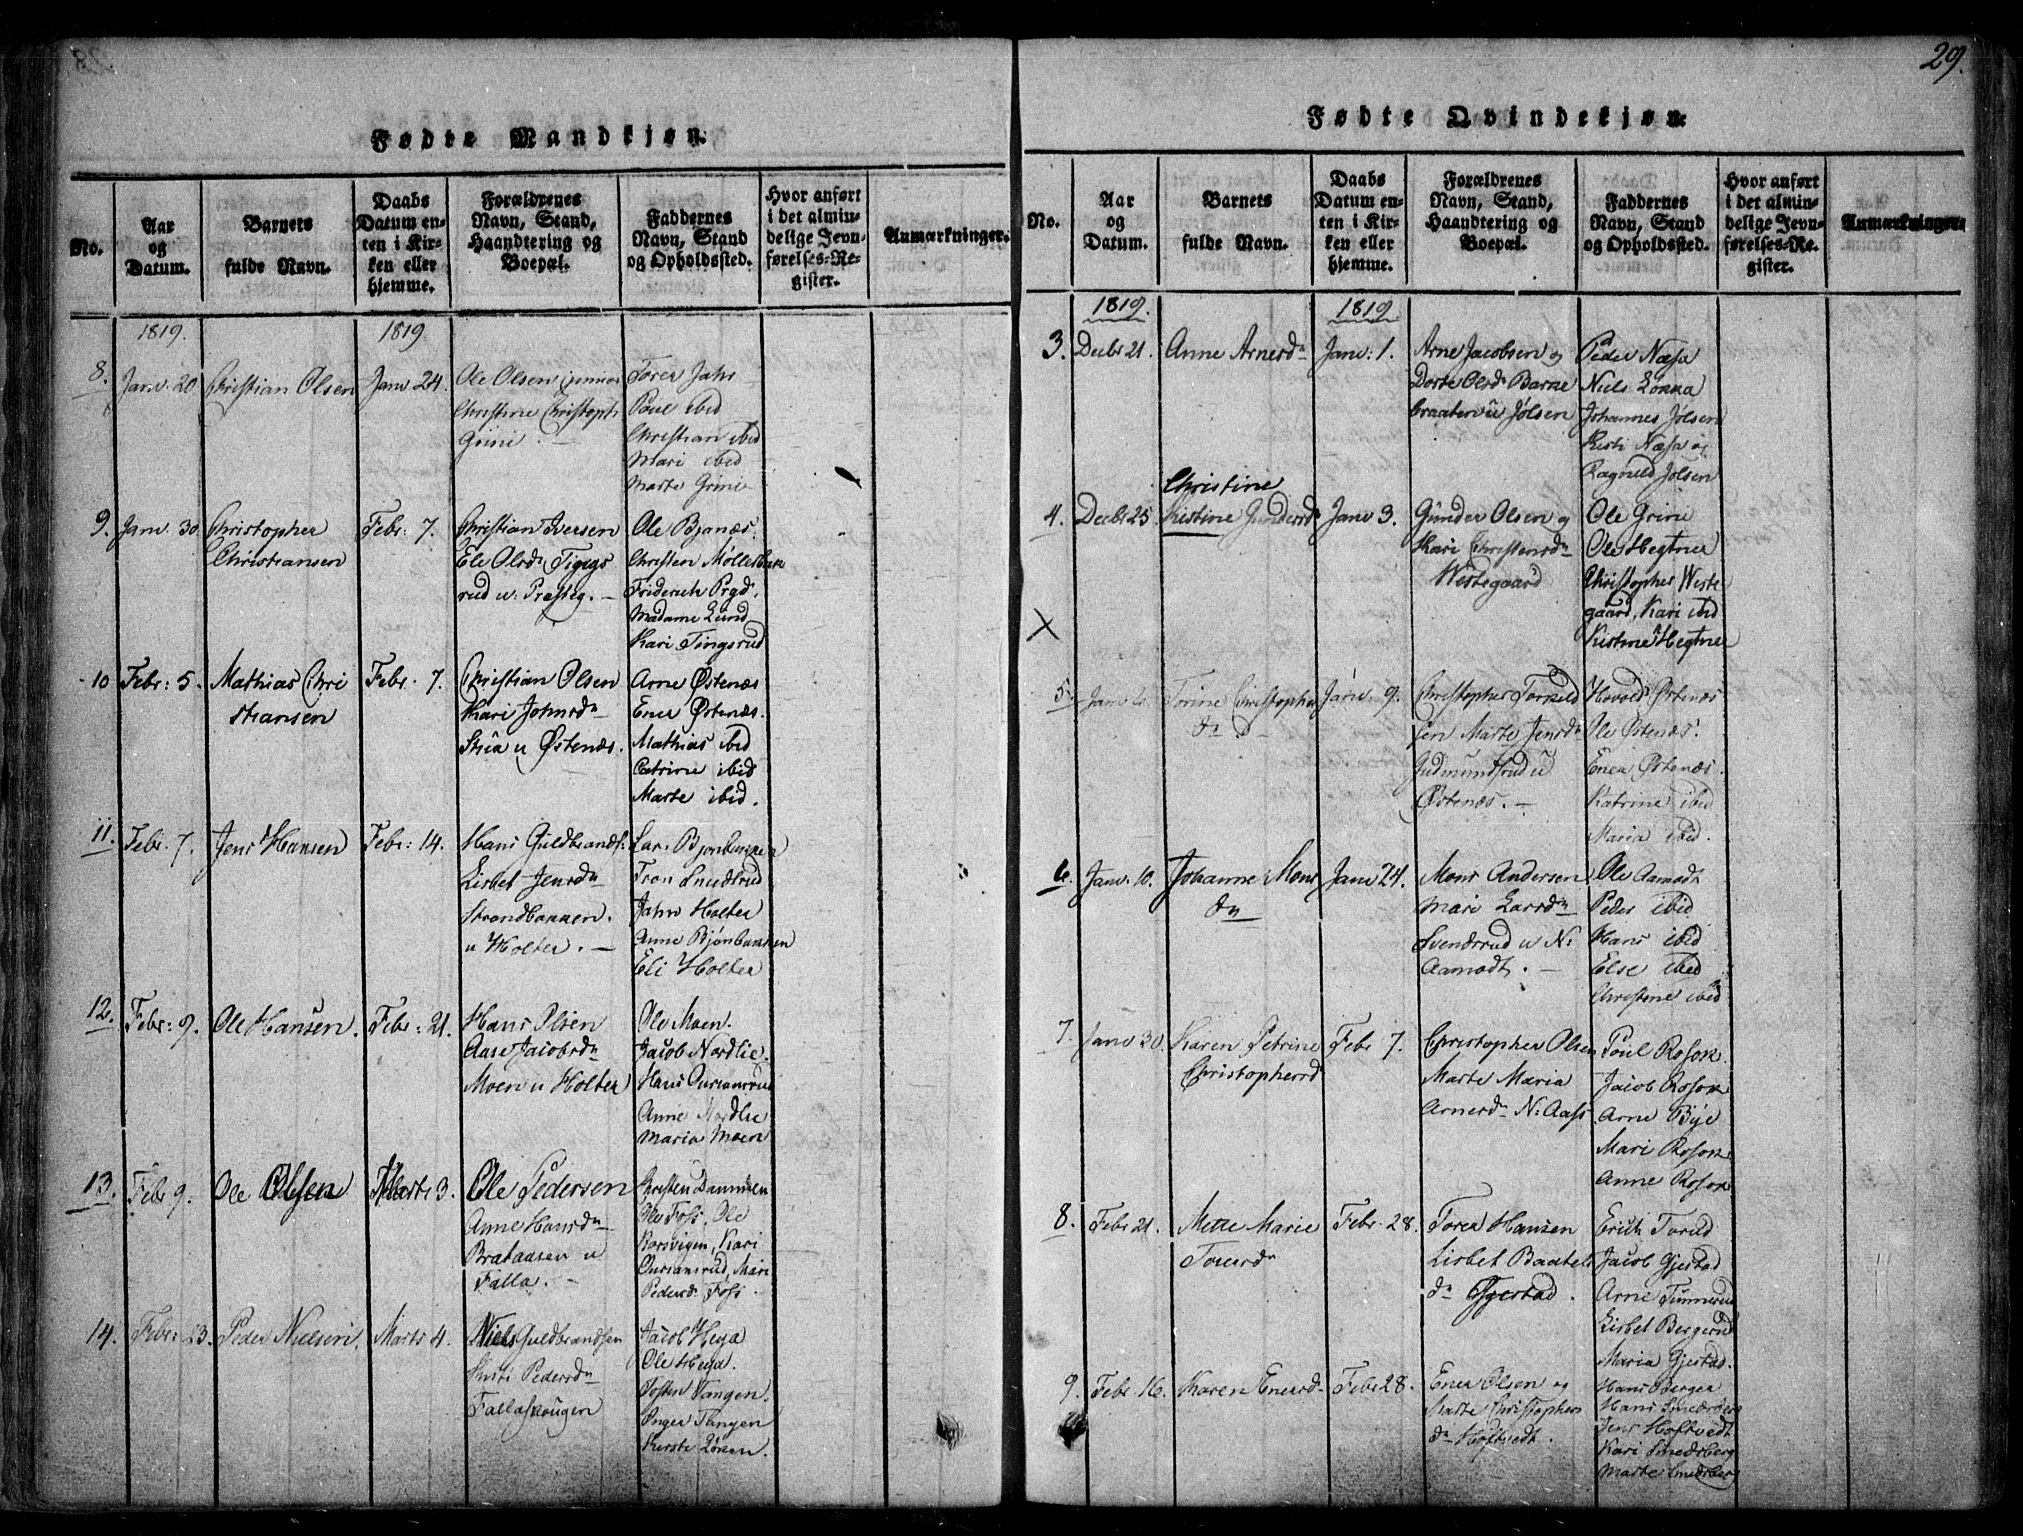 29.
Fødte Mandkjøn.
No.
Aar
og
Datum.
Barnets
fulde Navn.
Daabs
Datum en-
ten i Kir-
ken eller
hjemme.
Forældrenes
Navn, Stand,
Haandtering og
Boepæl.
Faddernes
Navn, Stand
og Opholdssted.
Hvor anført
i det almin-
delige Jevn-
førelses-Re-
gister.
Anmærkninger.
1819.
1819
8.
Janv. 20
Christian Olsen
Janv 24.
Ole Olsen
Christine Christoph
Grini. —
Torer Jahr
Poul ibid
Christian ibid
Mari ibid
Marte Grini
9.
Janv. 30.
Christopher
Christiansen
Febr: 7.
Christian Iversen
Ele Olsdn
rud u: Præsteg. —
Ole Bjønæs.
Christen Møllerbak
Friderich Prgd.
Madame Lund
Kari Tingsrud
10
Febr: 5.
Mathias Chri
stiansen
Febr. 7.
Christian Olsen
Kari Johnsdn
u Østenæs.
Arne Østenæs
Ener Østenæs.
Mathias ibid
Catrine ibid
Marte ibid.
11.
Febr. 7.
Jens Hansen
Febr: 14.
Hans Guldbrands.
Lisbet Jensdn
Strandbakken.
u Holter. —
Lars
Tron Smedsrud
Jahn Holter
Anne
Eli Holter
12.
Febr: 9.
Ole Hansen.
Febr: 21.
Hans Olsen
Aase Jacobsdn
Moen u Holter
Ole Moen.
Jacob Nordlie.
Hans Ouriansrud
Anne Nordlie
Maria Moen
13.
Febr 9.
Ole Olsen
Marts 3.
Ole Pedersen
Anne Hansdn
Brataasen u
Falla. —
Christen
Ole Foss, Ole
Korsvigen, Kari
Ouriansrud, Mari
Pedersd. Foss.
14.
Febr: 23.
Peder Nielsen.
Marts 4.
Niels Guldbrandsen
Kirsti Pedersdn
Fallashougen
Jacob Heya
Ole Heya.
Tosten Tangen.
Inger Tangen
Kirste
Fødte Qvindekjøn.
No.
Aar
og
Datum.
Barnets
fulde Navn.
Daabs
Datum en-
ten i Kir-
ken eller
hjemme.
Forældrenes
Navn, Stand,
Haandtering og
Boepæl.
Faddernes
Navn, Stand
og Opholdssted.
Hvor anført
i det almin-
delige Jevn-
førelses-Re-
gister.
Anmærkninger.
1819.
1819
3.
Decbr 21.
Anne Arnesdn
Janv: 1.
Arne Jacobsen og
Dorte Olsdn Barne
braaten u Jølsen
Peder Næsa
Niels Løkka
Johannes Jølsen
Kirsti Næsa og
Ragnild Jølsen
4.
Decbr 25
Christine
Kistine Gundersd
Janv 3.
Günder Olsen og
Kari Christensdn
Westegaard
Ole Grini
Ole Hegtner
Christopher Weste
gaard, Kari ibid
Kistine Hegtner
5.
Janv
Torine Christopher
dn
Janv. 9.
Christopher Torkild
sen Marte Jensdn
Gudmundsrud u
Østenæs. —
Hovold Østenæs
Ole Østenæs.
Ener Østenæs.
Katrine ibid
Maria ibid.
6.
Janv. 10.
Johanne Mons
dn
Janv 24.
Mons Andersen
Mari Larsdn
Svendsrud u N:
Aamodt. —
Ole Aamodt
Peder ibid
Hans ibid
Else ibid
Christine ibid
7.
Janv 30.
Karen Petrine
Christophersd
Febr 7.
Christopher Olsen
Marte Maria
Arnesdn N: Aass
Poul Rosok
Jacob Rosok
Arne Bye
Mari Rosok
Anne Rosok
8.
Febr 21.
Mette Marie
Torersdn
Febr. 28.
Torer Hansen
Lisbet Baatels
dn Gjestad.
Erich Torud
Jacob Gjestad
Arne Tünnerud
Lisbet Bergerud
Maria Gjestad.
9.
Febr. 16.
Karen Enersd.
Febr 28.
Ener Olsen og
Marte Christophers
dn Hoftvedt.
Hans Berger
Hans
Jens Hoftvedt
Kari Smedsberg
Marte Smedsberg